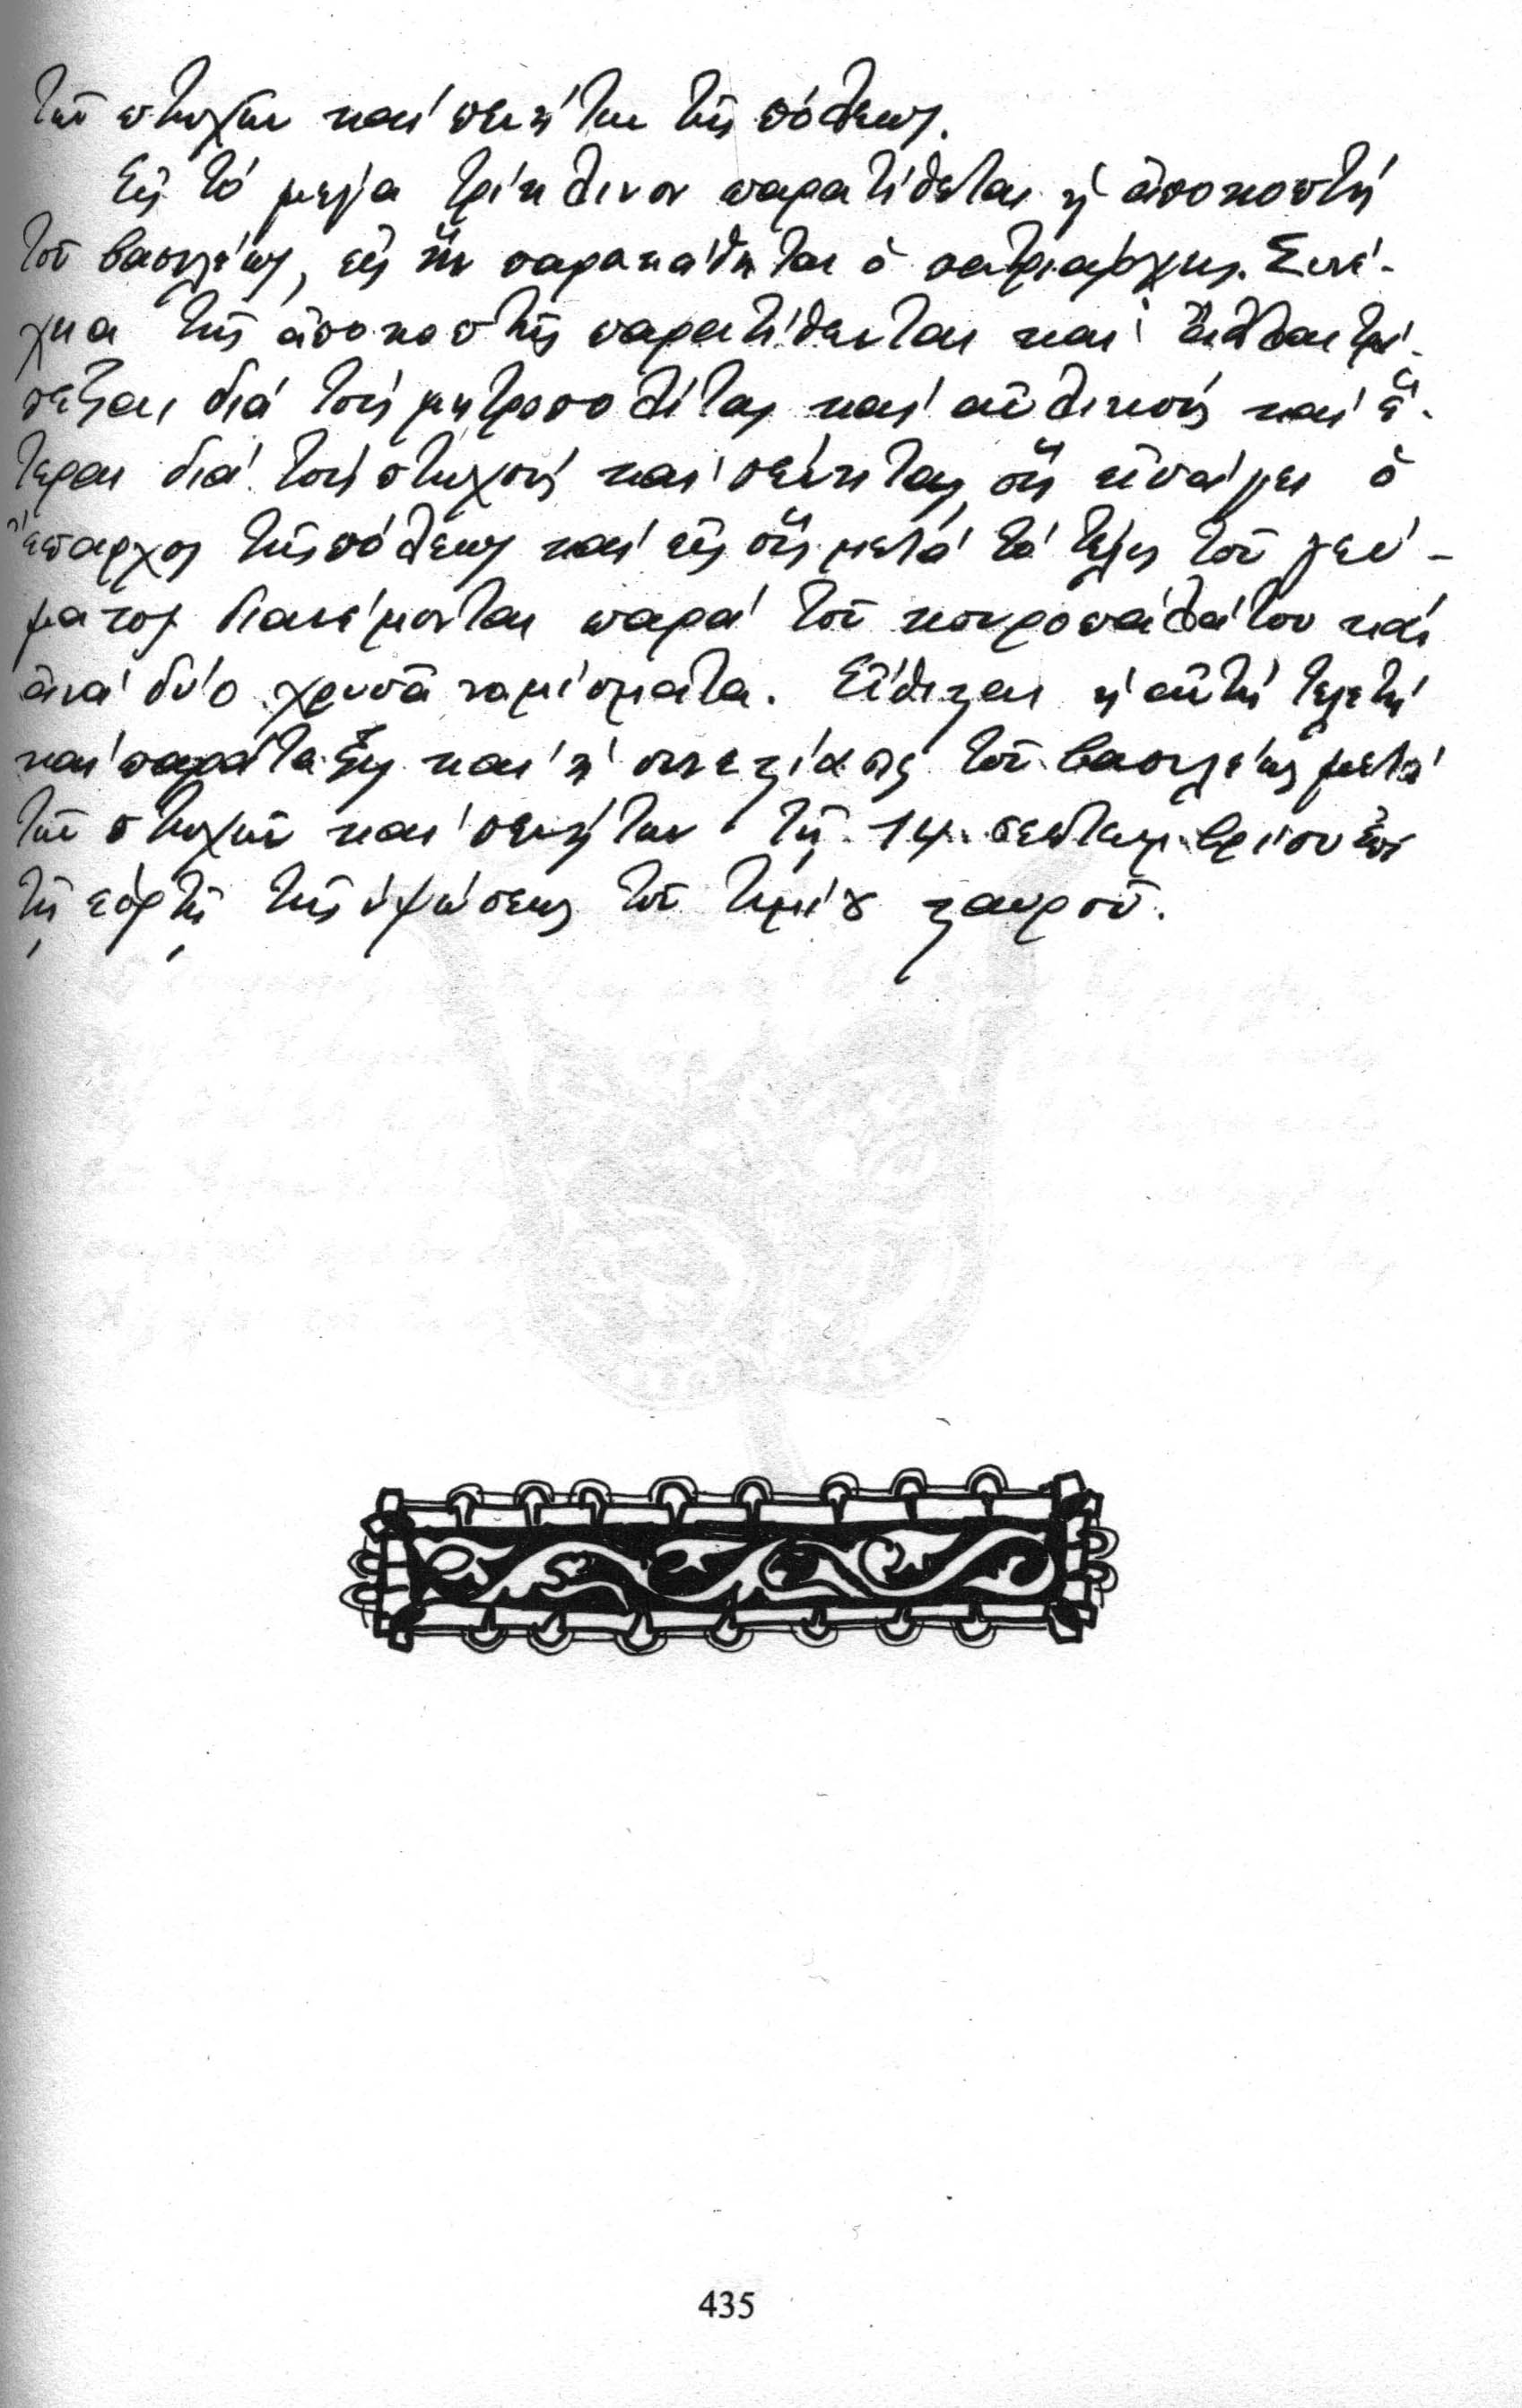 τῶν πτωχῶν καὶ πενήτων τῆς πόλεως.
Εἰς τό μέγα τρίκλινον παρατίθεται ἡ ἀποκοπτή
τοῦ βασιλέως, εἰς ἥν παρακάθηται ὁ πατριάρχης. Συνέ-
χεια τῆς ἀποκοπτῆς παρατίθενται καί ἄλλαι τρά-
πεζαι διά τούς μητροπολίτας καί αὐλικούς καί ἕ-
τεραι διά τούς πτωχούς καί πένητας οὕς εἰσάγει ὁ
ἔπαρχος τῆς πόλεως καί εἰς οὕς μετά τό τέλος τοῦ γεύ-
ματος διανέμονται παρά τοῦ κουροπαλάτου καί
ἀνά δύο χρυσᾶ νομίσματα. Εἴθισται ἡ αὐτή τελετή
καί παράταξις καί ἡ συνεστίασις τοῦ βασιλέως μετά
τῶν πτωχῶν καί πενήτων τῇ 14 σεπτεμβρίου ἐπί
τῇ ἑορτῇ τῆς ὑψώσεως τοῦ τιμίου σταυροῦ.
435